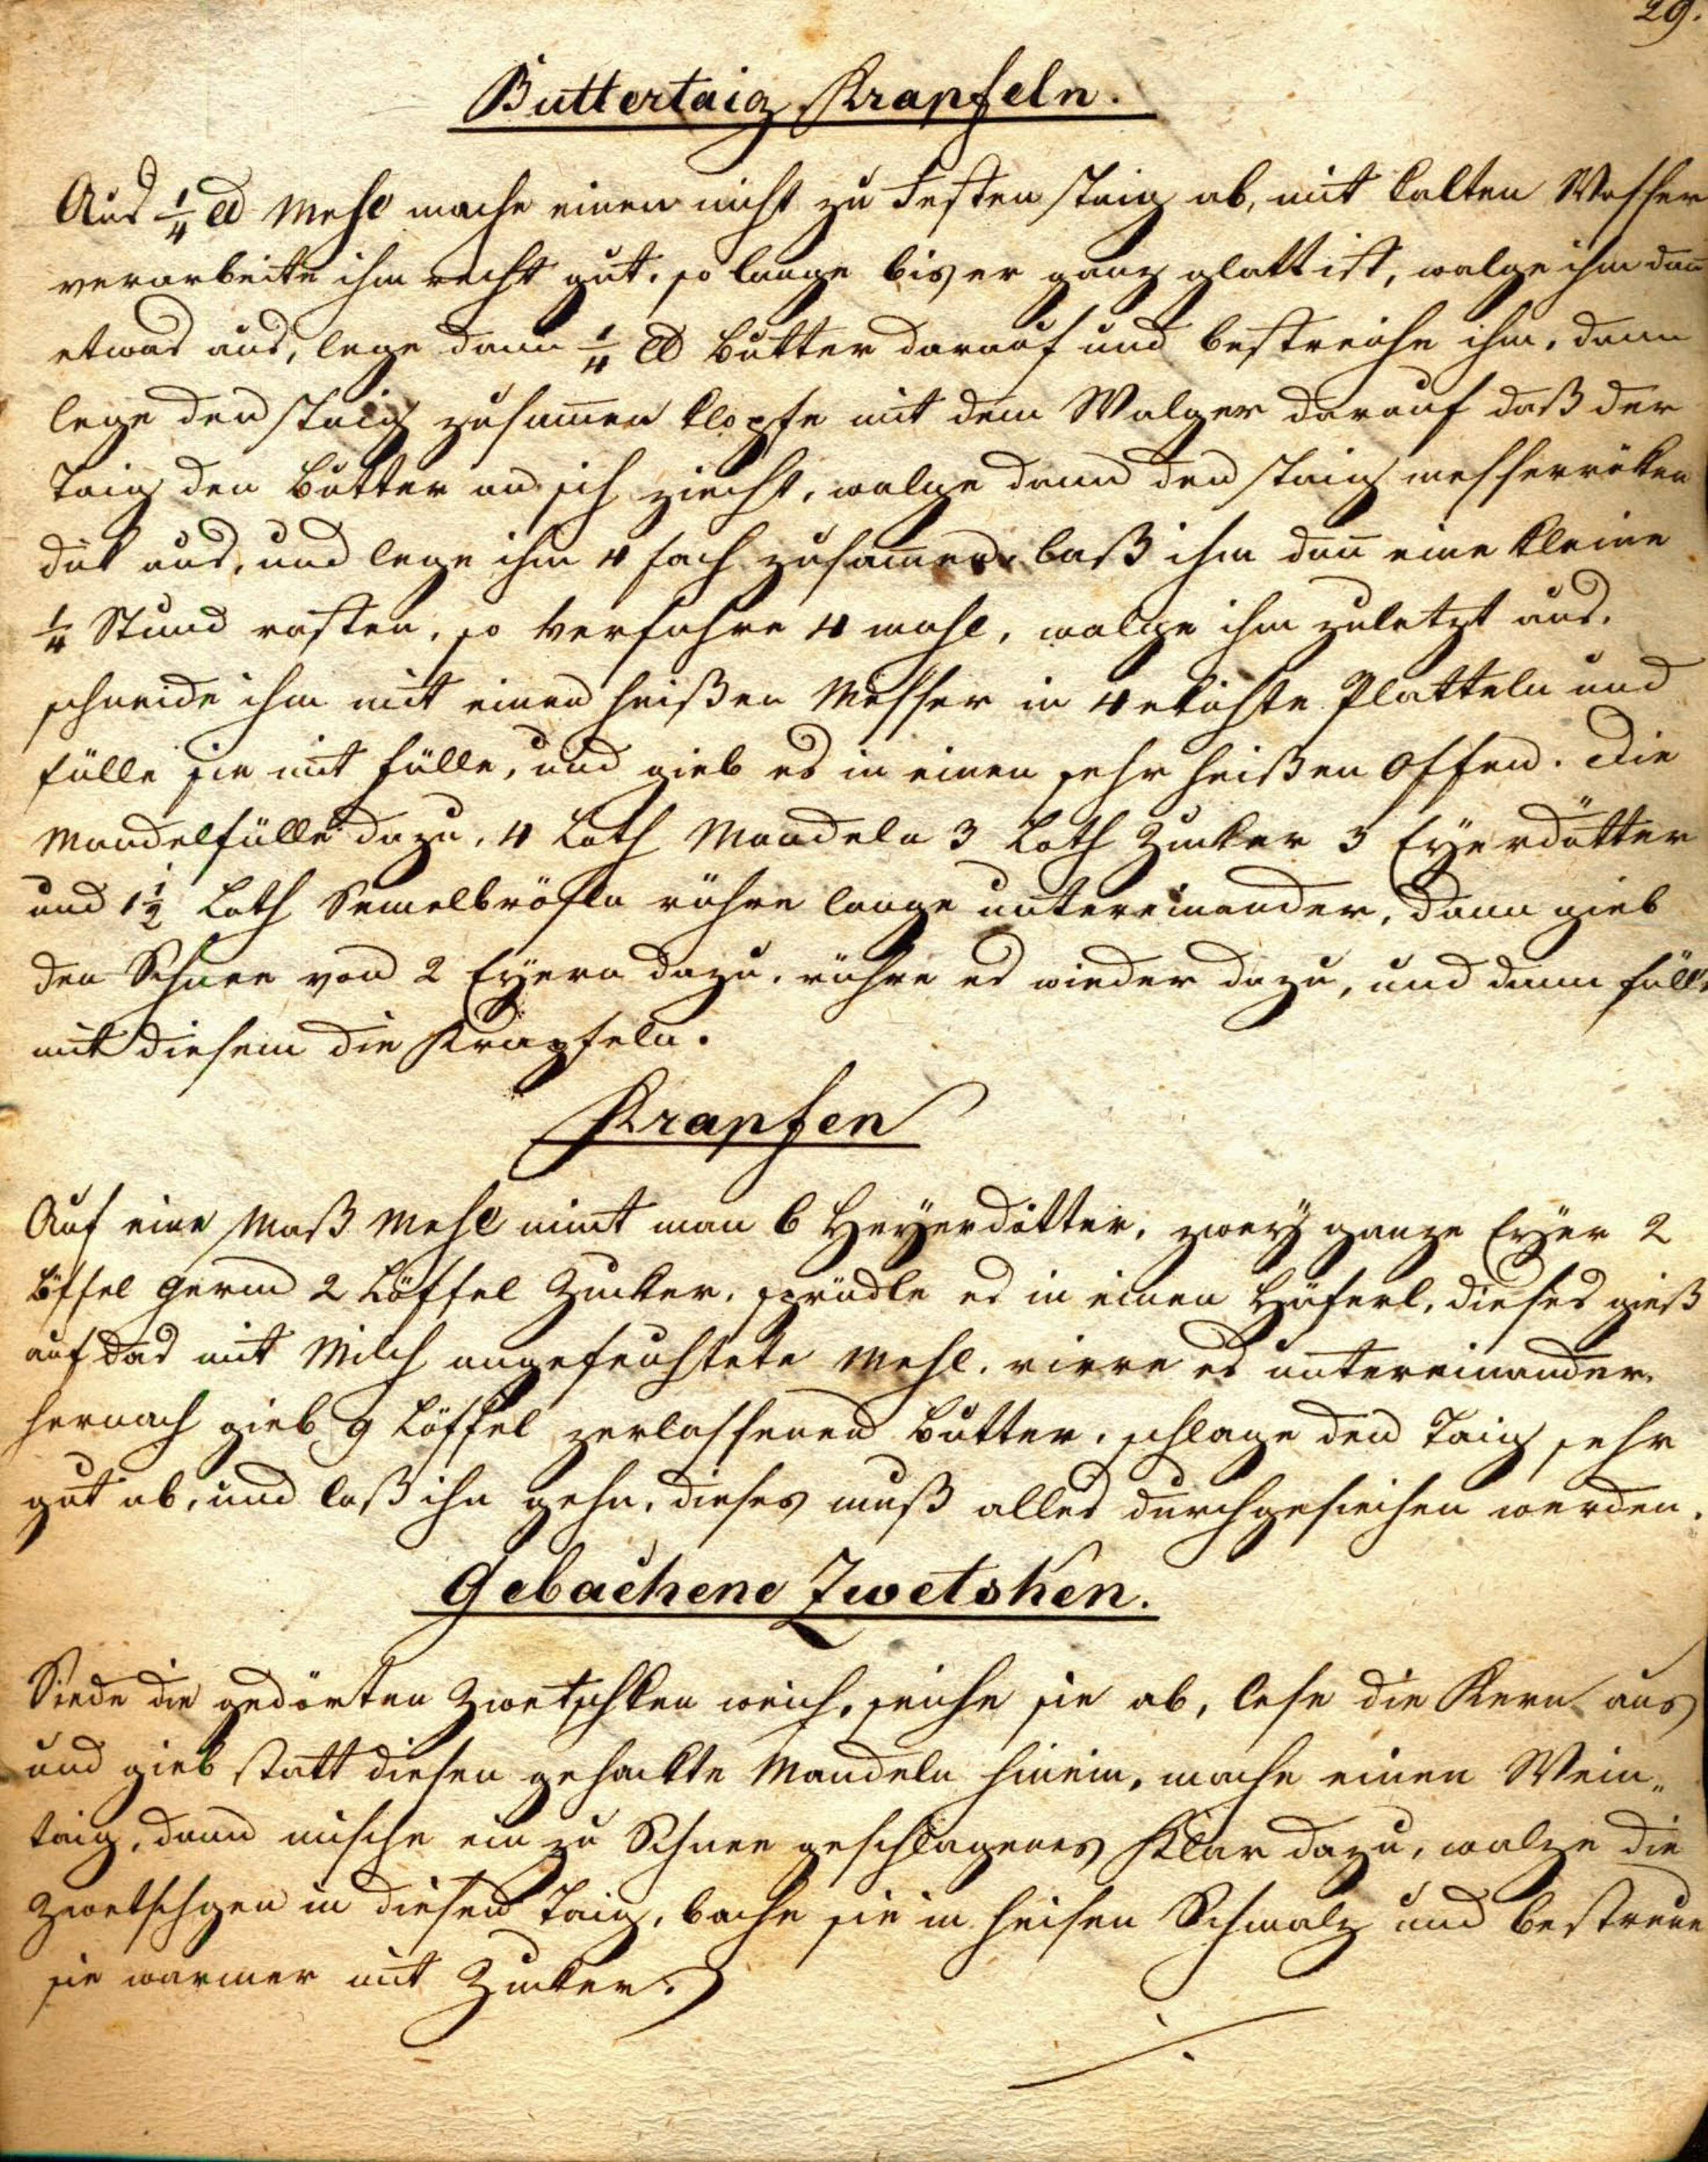 29.
Buttertaig Krapfeln.
Aus 1/4 ℔ Mehl mache einen nicht zu Festen Taig ab, mit kalten Wasser
verarbeite ihm recht gut, so lange bis er ganz glatt ist, walge ihm dan̄
etwas aus, lege dann 1/4 ℔ Butter darauf und bestreiche ihm, dann
lege den Taig zusam̄en klopfe mit dem Walger darauf daß der
Taig den Butter an sich zieht, walge dann den Taig messerröken
dik aus, und lege ihm 4 fach zusam̄en, laß ihm dan̄ eine kleine
1/4 Stund rasten, so verfahre 4 mahl, walge ihm zuletzt aus,
schneide ihm mit einen heißen Messer in 4 ekichte Platteln und
fülle sie mit fülle, und gieb es in einen sehr heißen Offen. Die
Mandelfülle dazu, 4 Loth Mandeln 3 Loth Zucker 3 Eyerdötter
und 1 1/2 Loth Semelbrösln rühre lange untereinander, dann gieb
den Schnee von 2 Eyern dazu, rühre es wieder dazu, und dann fülle
mit diesem die Krapfeln.
Krapfen
Auf eine Maß Mehl nim̄t man 6 Heyerdötter, zwey ganze Eyer 2
Löffel Germ 2 Löffel Zucker, sprüdle es in einen Häferl, dieses gieß
auf das mit Milch angefeuchtete Mehl, rirre es untereinander,
hernach gieb 9 Löffel zerlassenen Butter, schlage den Taig sehr
gut ab, und laß ihn gehn, dieses muß alles durchgesiehen werden.
Gebachene Zwetsken.
Siede die gedörten Zwetschken weich, seihe sie ab, lese die Kern aus
und gieb statt diesen gehackte Mandeln hinein, mache einen Wein„
taig, dann mische ein zu Schnee geschlagenes Klar dazu, walze die
Zwetschgen in diesen Taig, bache sie in heisen Schmalz und bestreue
sie warmer mit Zucker.